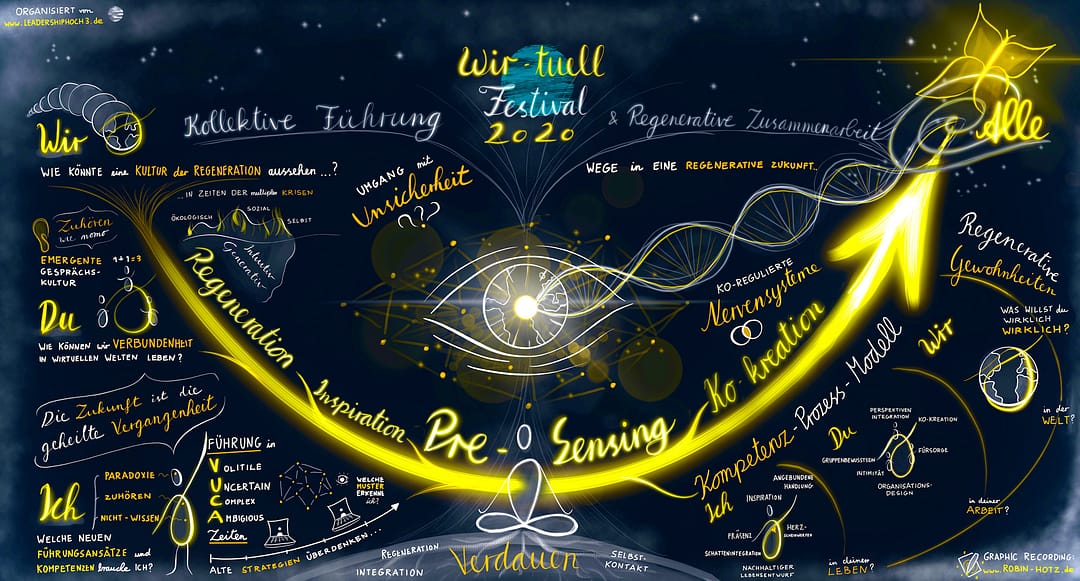 ORGANISIERT von
www.LEADERSHIPHOCH3.de
Wir-tuell
Festival
2020
Kollektive Führung
& Regenerative Zusammenarbeit
Alle
Wir
WIE KÖNNTE eine KULTUR der REGENERATION aussehen...?
... IN ZEITEN DER multiplen KRISEN
ÖKOLOGISCH
SOZIAL
SELBST
Intuitiv
Generativ
UMGANG mit
Unsicherheit
???
WEGE in EINE REGENERATIVE ZUKUNFT...
Zuhören
wie momo
EMERGENTE
GESPRÄCHS-
KULTUR
1+1=3
Du
WIE KÖNNEN wir VERBUNDENHEIT
IN WIRTUELLEN WELTEN LEBEN?
Die Zukunft ist die
geheilte Vergangenheit
Ich
PARADOXIE
ZUHÖREN
NICHT-WISSEN
WELCHE NEUEN
FÜHRUNGSANSÄTZE und
KOMPETENZEN brauche ICH?
FÜHRUNG in
VOLITILE
UNCERTAIN
COMPLEX
AMBIGIOUS
Zeiten
WELCHE
MUSTER
ERKENNE
ich?
ALTE STRATEGIEN ÜBERDENKEN...
Regeneration
Inspiration
Pre-Sensing
Ko-kreation
REGENERATION
INTEGRATION
Verdauen
SELBST-
KONTAKT
KO-REGULIERTE
Nervensysteme
Kompetenz-Prozess-Modell
Ich
ANGEBUNDENE
HANDLUNG
INSPIRATION
PRÄSENZ
HERZ-
SCHATTENINTEGRATION
NACHHALTIGER
LEBENSENTWURF
in deinem
LEBEN?
Du
PERSPEKTIVEN
INTEGRATION
KO-KREATION
GRUPPENBEWUSSTSEIN
FÜRSORGE
INTIMITÄT
ORGANISATIONS-
DESIGN
in deiner
ARBEIT?
Wir
Regenerative
Gewohnheiten
WAS WILLST du
WIRKLICH
WIRKLICH?
in der
WELT?
GRAPHIC RECORDING:
www.ROBIN-HOTZ.de